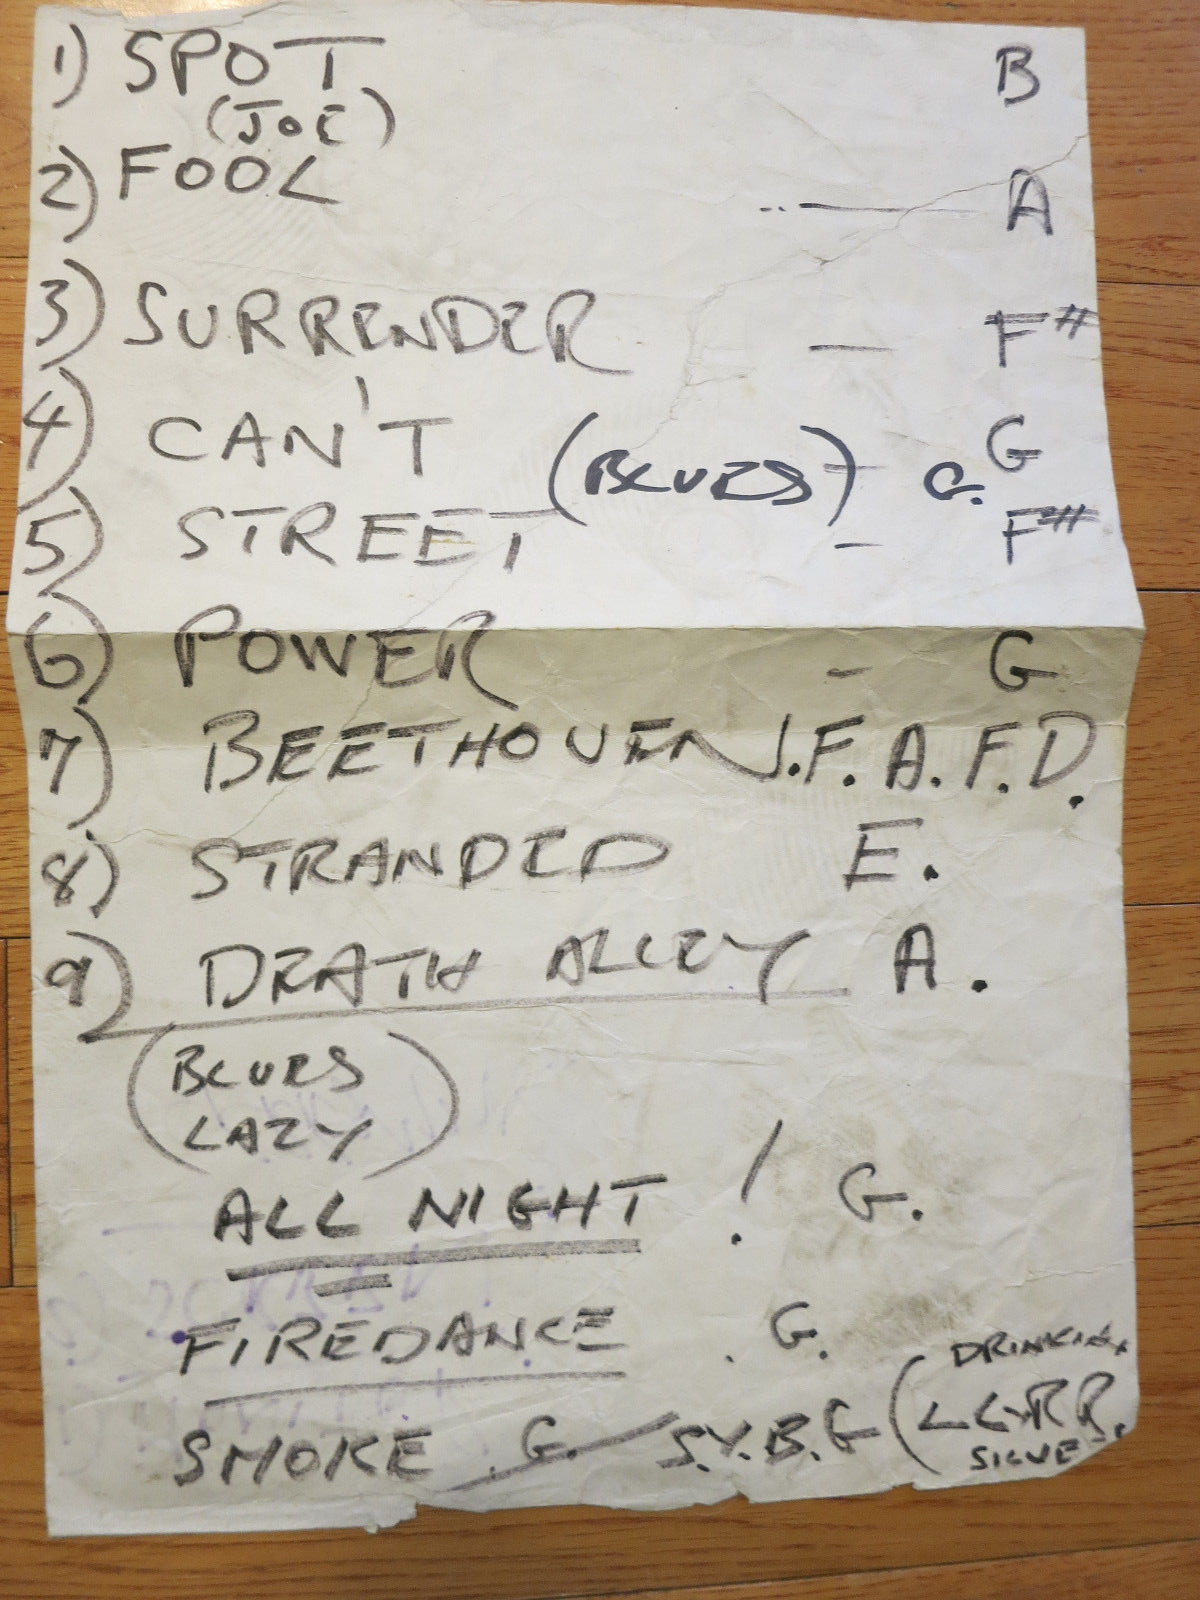 1) SPOT B
(JOE)
2) FOOL ..— A
3) SURRENDER — F#
4) CAN'T — G
(BLUES) G.
5) STREET - F#
6) POWER - G
7) BEETHOVEN. F. A. F. D.
8) STRANDED E.
9) DEATH ALLEY A.
(BLUES
LAZY)
ALL NIGHT ! G.
FIREDANCE . G.
DRINKIN,
SMOKE G. / S.Y.B.G (LLRR.